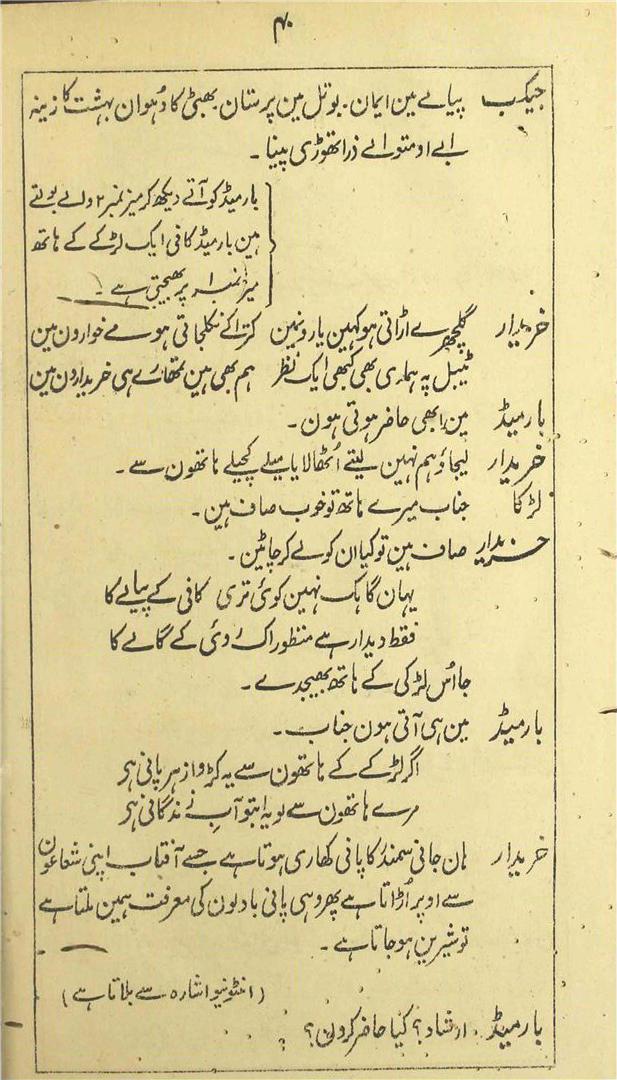 ۴۰
جیکب پیالے مین ایمان۔ بوتل مین پرستان۔ بھٹی کا دُھوان بہشت کا زینہ
ابے او متوالے ذرا تھوڑی پینا۔
بارمیڈ کو آتے دیکھ کر میز نمبر ۲ والے بولتے
ہین بارمیڈ کافی ایک لڑکے کے ہاتھ
میز نمبر ۱ پر بھیجتی ہے۔
خریدار گلچھرے اڑاتی ہو کہین یارونمین کترا کے نکلجاتی ہو مے خوارون مین
ٹیبل پہ ہماری بھی کبھی ایک نظر ہم بھی ہین تمھارے ہی خریدارون مین
بارمیڈ مین ابھی حاضر ہوتی ہون۔
خریدار لیجاؤ ہم نہین لیتے اُٹھا لایا میلے کچیلے ہاتھون سے۔
لڑکا جناب میرے ہاتھ تو خوب صاف ہین۔
خریدار صاف ہین تو کیا ان کو لے کر چاٹین۔
یہان گاہک نہین کوئی تری کافی کے پیالے کا
فقط دیدار ہے منظور اک روئی کے گالے کا
جا اُس لڑکی کے ہاتھ بھیجدے۔
بارمیڈ مین ہی آتی ہون جناب۔
اگر لڑکے کے ہاتھون سے یہ کڑوا زہر پانی ہر
مرے ہاتھون سے لو یہ ابتو آبِ زندگانی ہر
خریدار ہان جانی سمندر کا پانی کھاری ہوتا ہے جسے آفتاب اپنی شعاعون
سے اوپر اُڑاتا ہے پھر وہی پانی بادلون کی معرفت ہمین ملتا ہے
تو شیرین ہو جاتا ہے۔
(انٹونیو اشارہ سے بلاتا ہے)
بارمیڈ ۔ ارشاد؟ کیا حاضر کرون؟